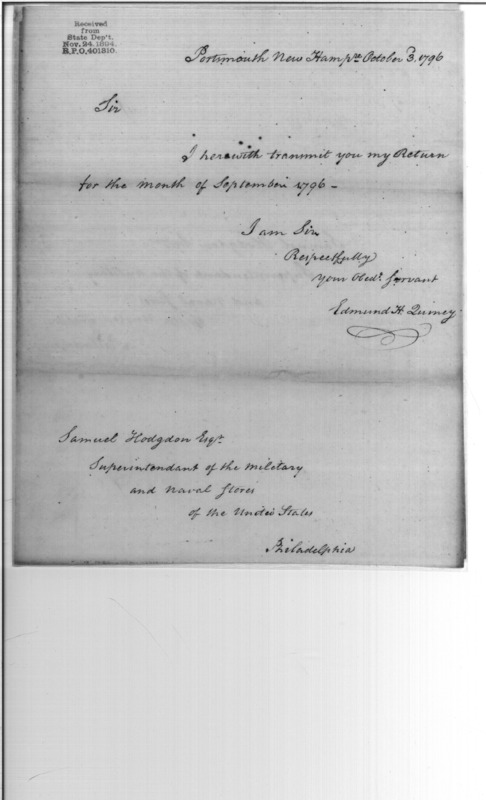 Received
from
State Dep't.
Nov. 24, 1894.
B.P.O. 401310.
Portsmouth New Hampr. October 3, 1796
Sir
I herewith transmit you my Return
for the month of September 1796 -
I am Sir
Respectfully
your Obedt. Servant
Edmund H. Quincy
Samuel Hodgdon Esqr.
Superintendant of the Military
and Naval Stores
of the United States
Philadelphia